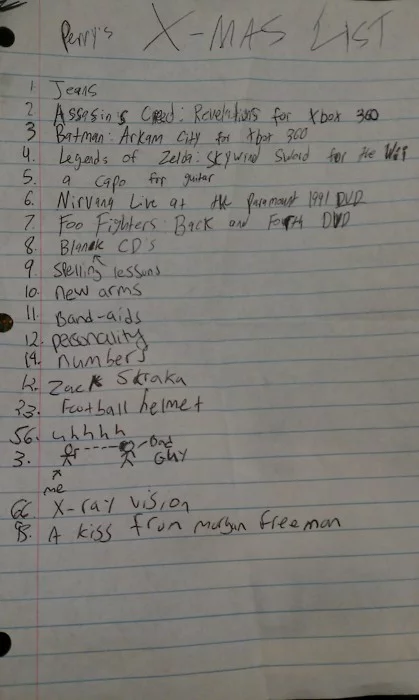 Perry's X-MAS LIST
1. Jeans
2 Assasin's Creed: Revelations for Xbox 360
3 Batman: Arkam City for Xbox 360
4. Legends of Zelda: Skywind Sword for the Wii
5. a capo for guitar
6. Nirvana Live at the Paramount 1991 DVD
7. Foo Fighters: Back and Forth DVD
8. Blank CD's
9. Spelling lessons
10. new arms
11. Band-aids
12. personality
14. numbers
12. Zack Skraka
23. Football helmet
56. uhhhh
3. Bad
Guy
me
66. X-ray vision
8. A kiss from morgan freeman